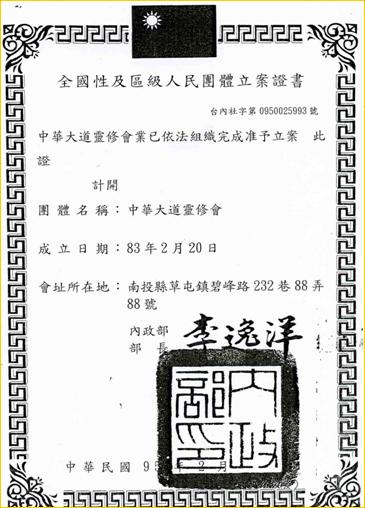 全國性及區級人民團體立案證書
台內社字第 0950025993 號
中華大道靈修會業已依法組織完成准予立案　此
證
計開
團體名稱：中華大道靈修會
成立日期：83年2月20日
會址所在地：南投縣草屯鎮碧峰路232巷88弄
88號
內政部
部長 李逸洋
內政部印
中華民國 9 年 2 月